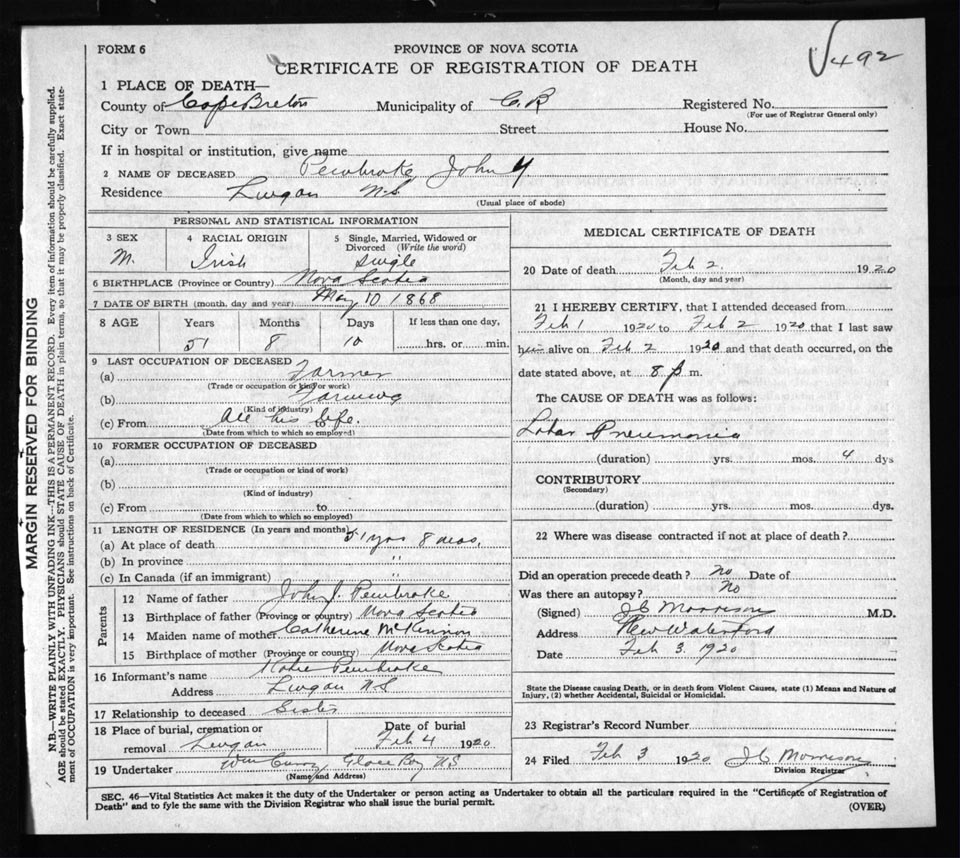 FORM 6
PROVINCE OF NOVA SCOTIA
√492
CERTIFICATE OF REGISTRATION OF DEATH
1 PLACE OF DEATH—
County of Cape Breton Municipality of C.B Registered No.
(For use of Registrar General only)
City or Town Street House No.
If in hospital or institution, give name
2 NAME OF DECEASED Pembroke John
Residence Lingan N.S.
(Usual place of abode)
PERSONAL AND STATISTICAL INFORMATION
3 SEX 4 RACIAL ORIGIN 5 Single, Married, Widowed or
Divorced (Write the word)
M. Irish Single
6 BIRTHPLACE (Province or Country) Nova Scotia
7 DATE OF BIRTH (month, day and year) May 10 1868
8 AGE Years Months Days If less than one day,
51 8 10 hrs. or min.
9 LAST OCCUPATION OF DECEASED
(a) Farmer
(Trade or occupation or kind or work)
(b) Farming
(Kind of industry)
(c) From All his life.
(Date from which to which so employed)
10 FORMER OCCUPATION OF DECEASED
(a)
(Trade or occupation or kind of work)
(b)
(Kind of industry)
(c) From to
(Date from which to which so employed)
11 LENGTH OF RESIDENCE (In years and months)
(a) At place of death 51 yrs 8 mos.
(b) In province "
(c) In Canada (if an immigrant) "
Parents
12 Name of father John J. Pembroke
13 Birthplace of father (Province or country) Nova Scotia
14 Maiden name of mother Catherine McKinnon
15 Birthplace of mother (Province or country) Nova Scotia
16 Informant's name Katie Pembroke
Address Lingan N.S
17 Relationship to deceased Sister
18 Place of burial, cremation or Date of burial
removal Lingan Feb 4 1920
19 Undertaker Wm Curry Glace Bay N.S
(Name and Address)
MEDICAL CERTIFICATE OF DEATH
20 Date of death Feb 2. 1920
(Month, day and year)
21 I HEREBY CERTIFY, that I attended deceased from
Feb 1 1920 to Feb 2 1920 that I last saw
him alive on Feb 2 1920 and that death occurred, on the
date stated above, at 8 p m.
The CAUSE OF DEATH was as follows:
Lobar Pneumonia
(duration) yrs. mos. 4 dys
CONTRIBUTORY
(Secondary)
(duration) yrs. mos. dys.
22 Where was disease contracted if not at place of death?
Did an operation precede death? No Date of
Was there an autopsy? No
(Signed) J C Morrison M.D.
Address New Waterford
Date Feb 3. 1920
State the Disease causing Death, or in death from Violent Causes, state (1) Means and Nature of
Injury, (2) whether Accidental, Suicidal or Homicidal.
23 Registrar's Record Number
24 Filed Feb 3 1920 J C Morrison
Division Registrar
SEC. 46—Vital Statistics Act makes it the duty of the Undertaker or person acting as Undertaker to obtain all the particulars required in the "Certificate of Registration of
Death" and to fyle the same with the Division Registrar who shall issue the burial permit.
(OVER)
MARGIN RESERVED FOR BINDING
N.B.—WRITE PLAINLY WITH UNFADING INK—THIS IS A PERMANENT RECORD. Every item of information should be carefully supplied.
AGE should be stated EXACTLY. PHYSICIANS should STATE CAUSE OF DEATH in plain terms, so that it may be properly classified. Exact state-
ment of OCCUPATION is very important. See instructions on back of Certificate.